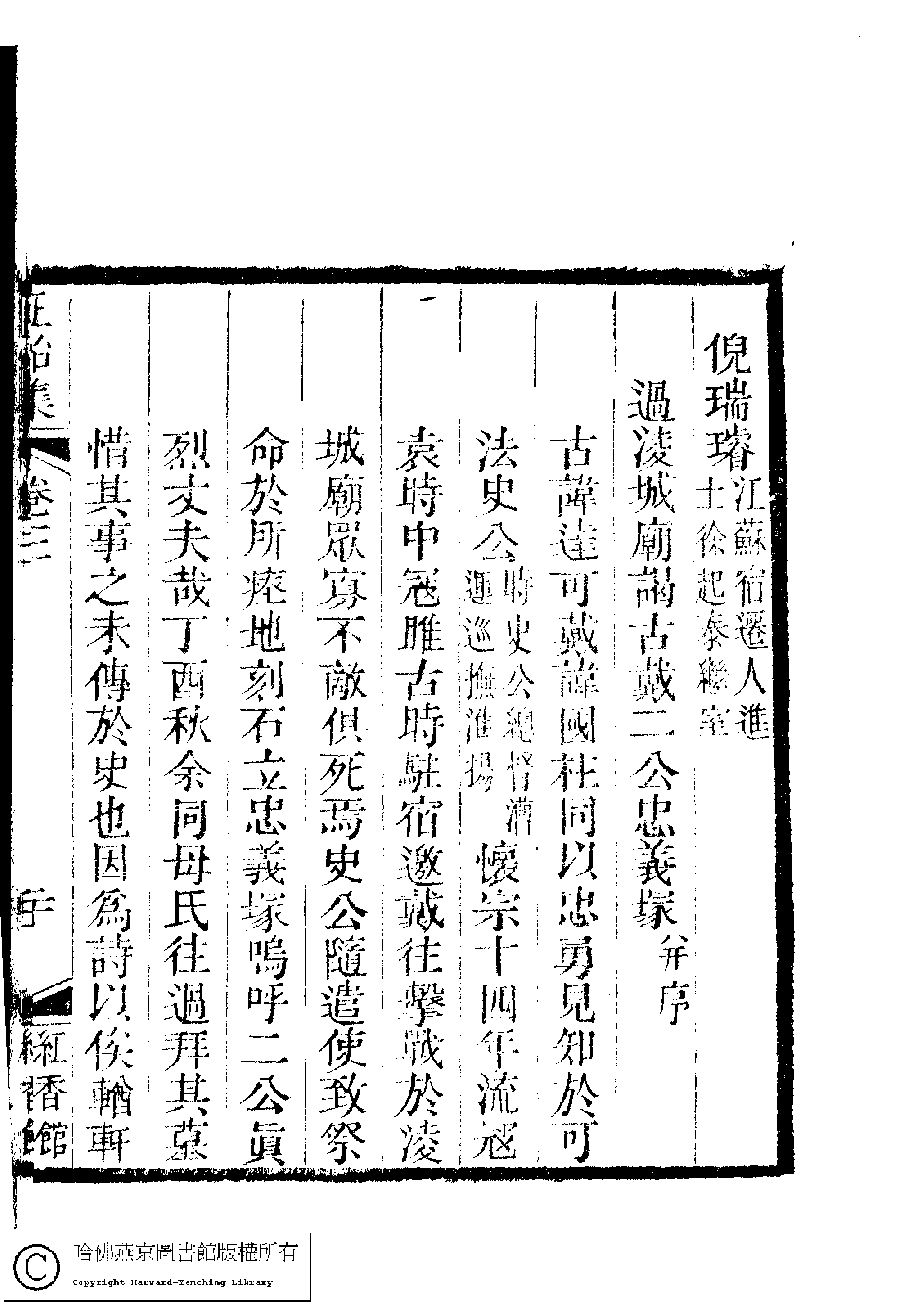 倪瑞璿江蘇宿遷人進
士徐起泰繼室
過淩城廟謁古戴二公忠義塚并序
古諱達可戴諱國柱同以忠勇見知於可
法史公時史公總督漕
運巡撫淮揚懷宗十四年流寇
袁時中寇睢古時駐宿邀戴往擊戰於凌
城廟眾寡不敵俱死焉史公隨遣使致祭
命於所瘞地刻石立忠義塚嗚呼二公眞
烈丈夫哉丁酉秋余同母氏往過拜其墓
惜其事之未傳於史也因爲詩以俟輶軒
正始集 卷三 紅香館
哈佛燕京圖書館版權所有
Copyright Harvard-Yenching Library